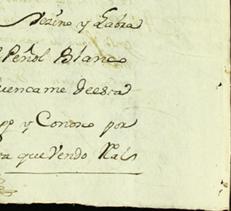 Vezino y Labra
Peñol Blanco
uencame Deesta
pp y Conozco por
ra que Vendo Real